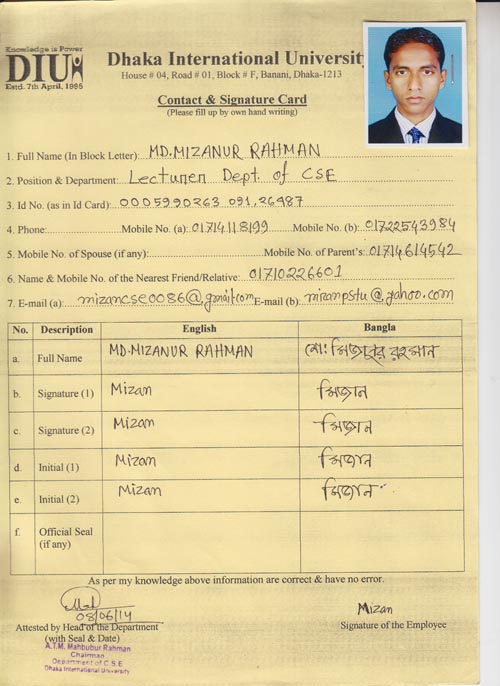 Knowledge is Power
DIU
Estd. 7th April, 1995
Dhaka International University
House # 04, Road # 01, Block # F, Banani, Dhaka-1213
Contact & Signature Card
(Please fill up by own hand writing)
1. Full Name (In Block Letter): MD.MIZANUR RAHMAN
2. Position & Department: Lecturer Dept. of CSE
3. Id No. (as in Id Card): 0005990263 091,26487
4. Phone: Mobile No. (a): 01714118199 Mobile No. (b): 01722543984
5. Mobile No. of Spouse (if any): Mobile No. of Parent's: 01714614542
6. Name & Mobile No. of the Nearest Friend/Relative: 01710226601
7. E-mail (a): mizancse0086@gmail.com E-mail (b): mizanpstu@yahoo.com
No. Description English Bangla
a. Full Name MD.MIZANUR RAHMAN মো: মিজানুর রহমান
b. Signature (1) Mizan মিজান
c. Signature (2) Mizan মিজান
d. Initial (1) Mizan মিজান
e. Initial (2) Mizan মিজান
f. Official Seal
(if any)
As per my knowledge above information are correct & have no error.
08/06/14
Mizan
Attested by Head of the Department
(with Seal & Date)
Signature of the Employee
A.T.M. Mahbubur Rahman
Chairman
Department of C.S.E
Dhaka International University